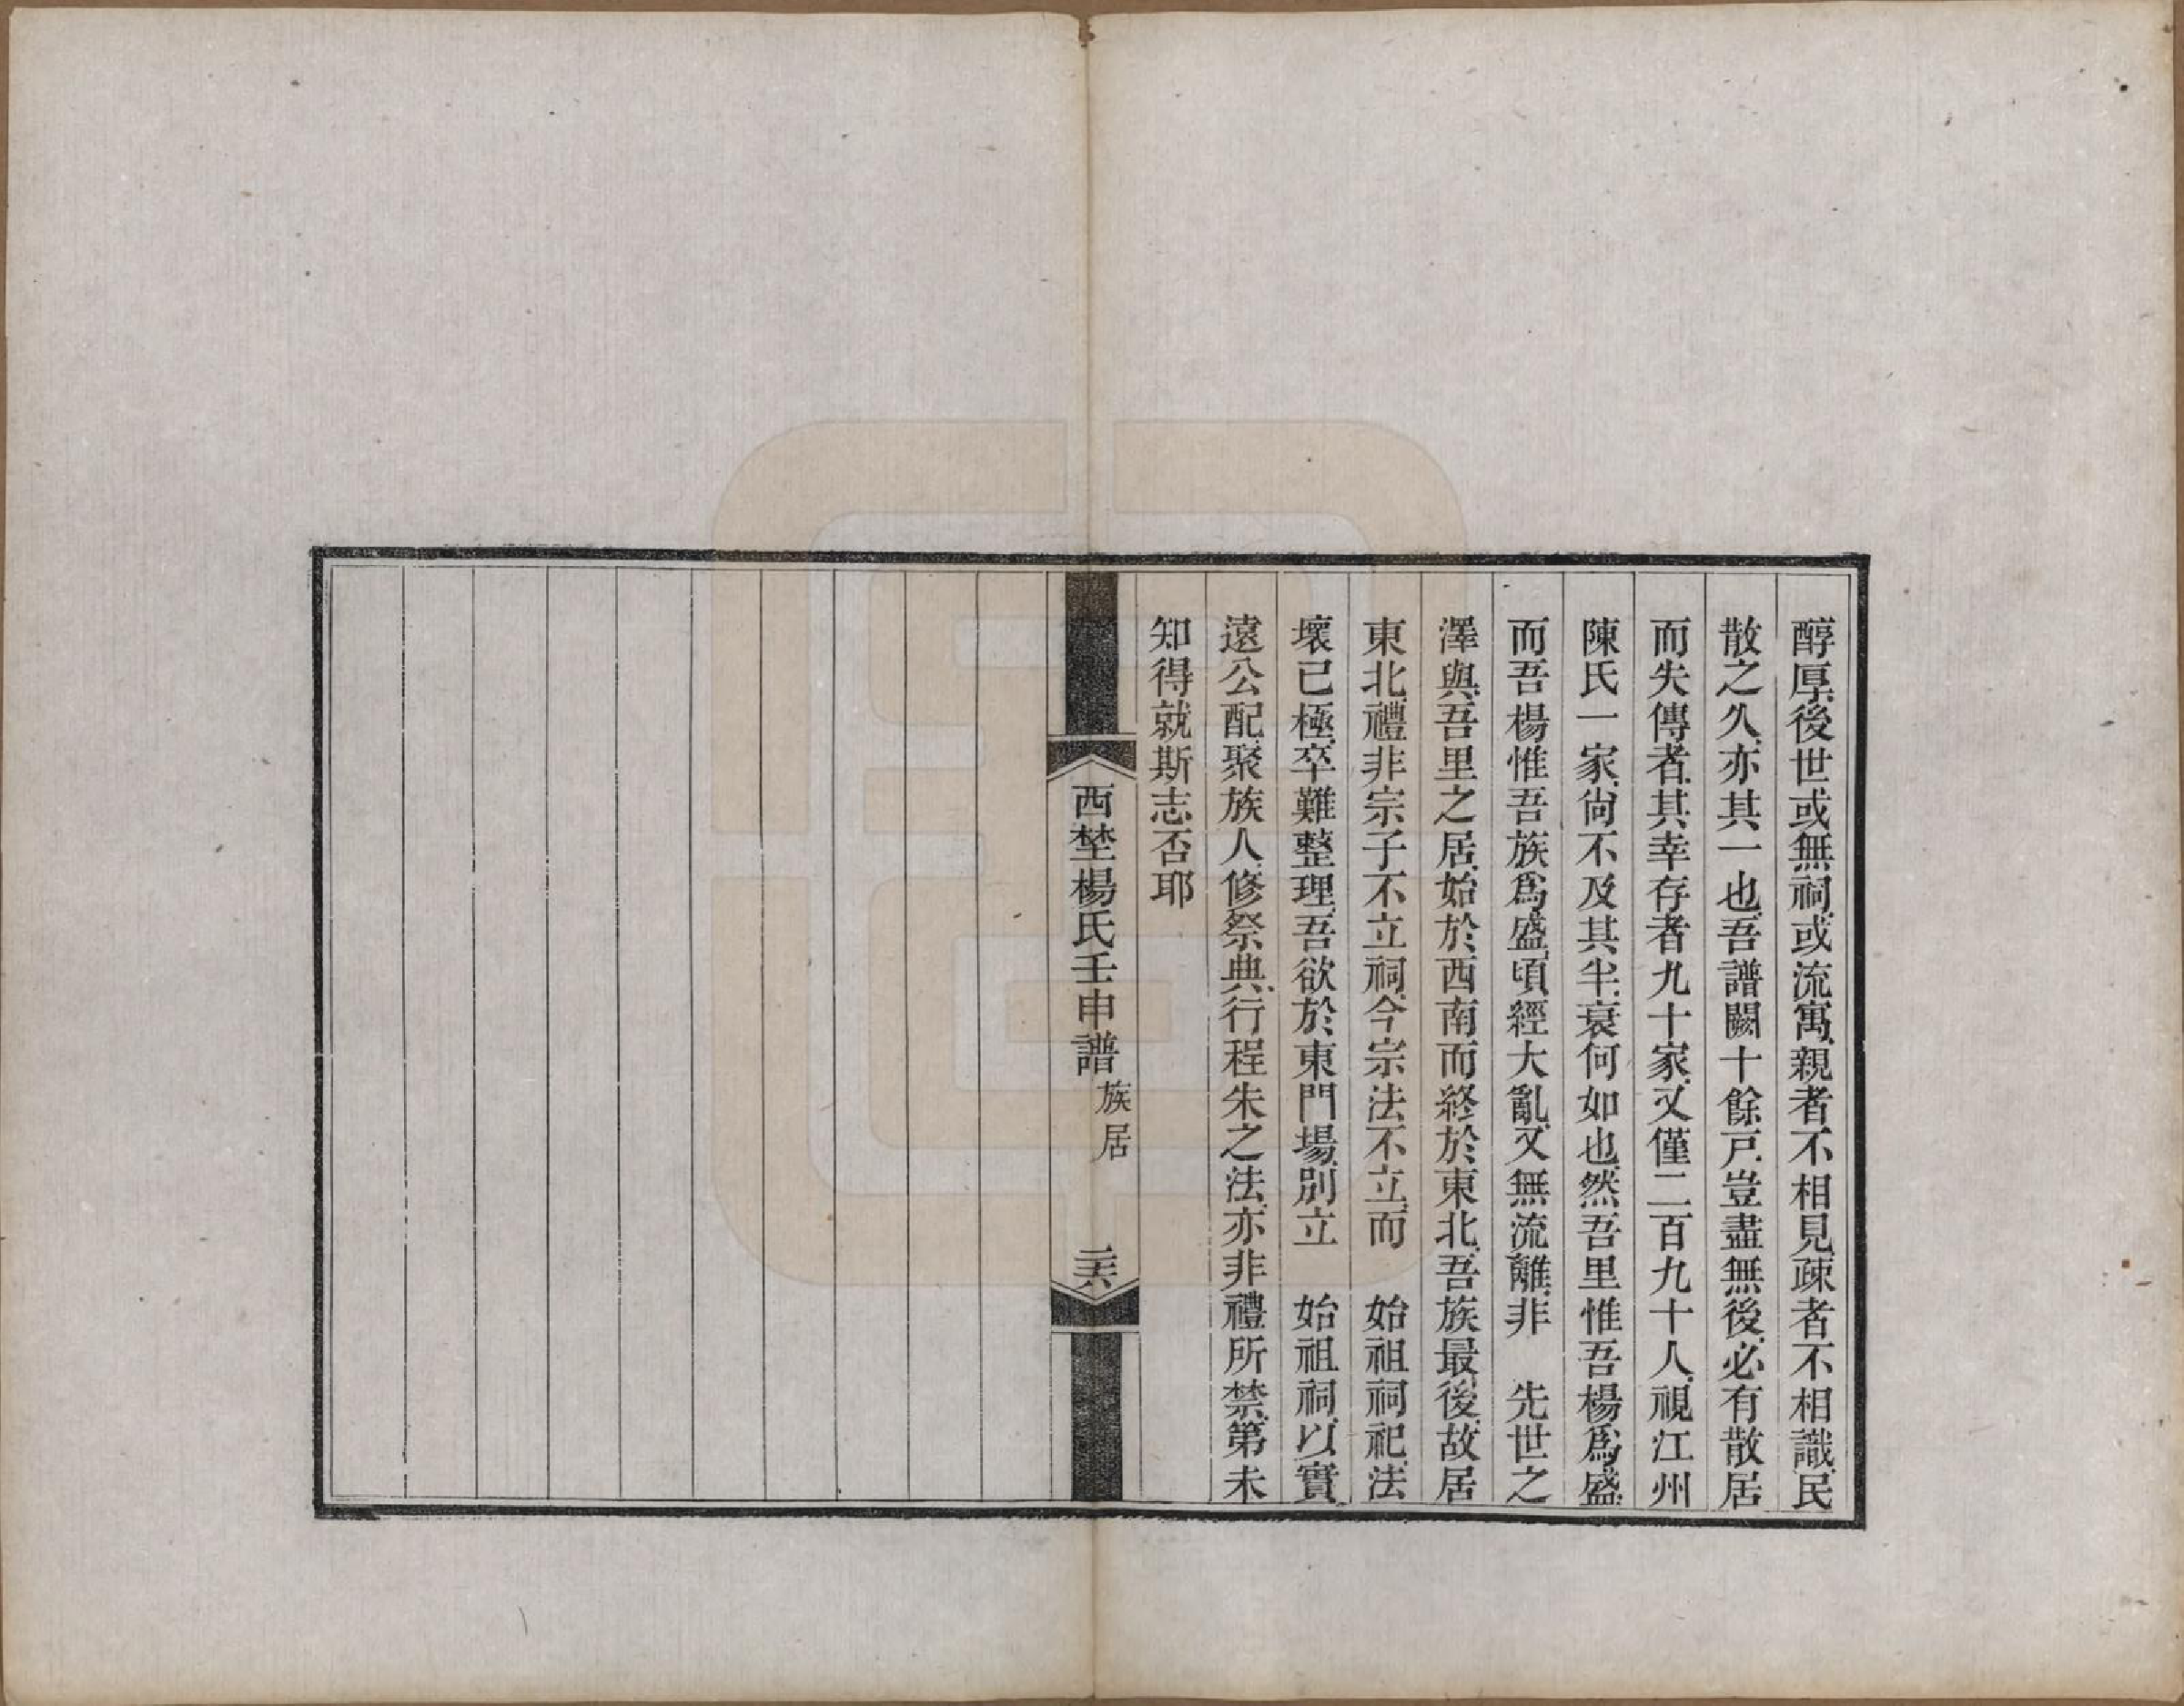 醇厚後世或無祠或流寓親者不相見疎者不相識民
散之久亦其一也吾譜闕十餘戶豈盡無後必有散居
而失傳者其幸存者九十家又僅二百九十人視江州
陳氏一家尙不及其半衰何如也然吾里惟吾楊爲盛
而吾楊惟吾族爲盛頃經大亂又無流離非　先世之
澤與吾里之居始於西南而終於東北吾族最後故居
東北禮非宗子不立祠今宗法不立而　始祖祠祀法
壞已極卒難整理吾欲於東門場別立　始祖祠以實
遠公配聚族人修祭典行程朱之法亦非禮所禁第未
知得就斯志否耶
西埜楊氏壬申譜　族居　二六